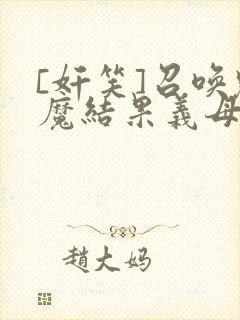 [奸笑]召唤恶
魔结果義母
趙大妈